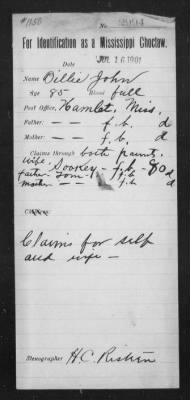 #1150
No.
For Identification as a Mississippi Choctaw.
Date JUL 16 1901
Name Billie John
Age 85 Blood full
Post Office, Hamlet, Miss.
Father: — — f.b. d
Mother: — — f.b. d
Claims through both parents.
wife, Sookey - f.b. - 80 d
father - Tom - f.b. d
mother - — f.b. d
Claims for self
and wife —
Stenographer H.C. Risteen